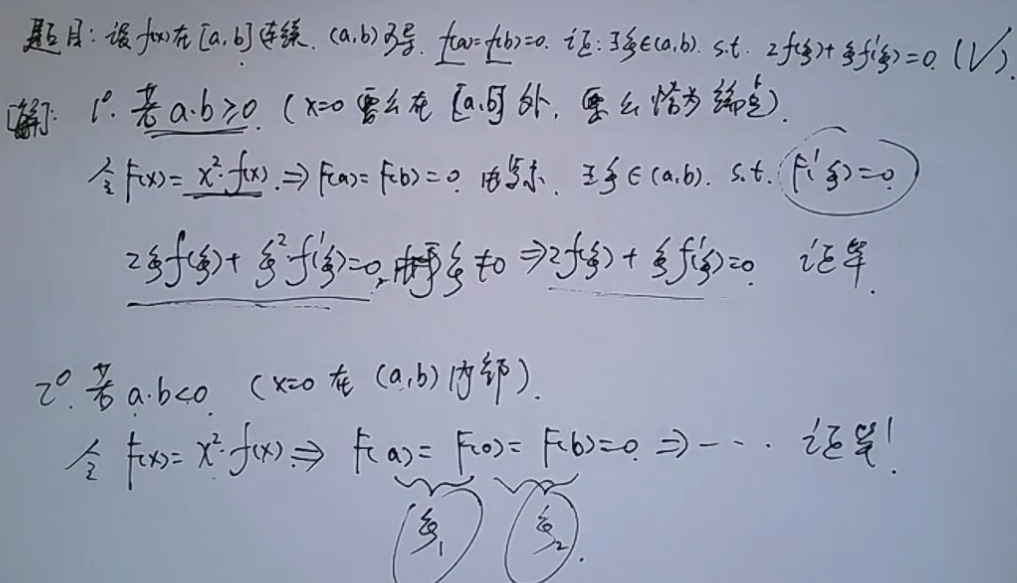 题目: 设 f(x) 在 [a,b] 连续. (a,b) 可导. f(a)=f(b)=0. 证: ∃ξ∈(a,b). s.t. 2f(ξ)+ξf'(ξ)=0. (√).
解: 1°. 若 a·b≥0. (x=0 要么在 [a,b] 外, 要么恰为端点).
令 F(x)=x²·f(x). ⇒ F(a)=F(b)=0. 由罗尔. ∃ξ∈(a,b). s.t. F'(ξ)=0
2ξf(ξ)+ξ²f'(ξ)=0, 由于ξ≠0 ⇒ 2f(ξ)+ξf'(ξ)=0. 证毕.
2°. 若 a·b<0. (x=0 在 (a,b) 内部).
令 F(x)=x²·f(x). ⇒ F(a)=F(0)=F(b)=0. ⇒ --- 证毕!
ξ₁ ξ₂.